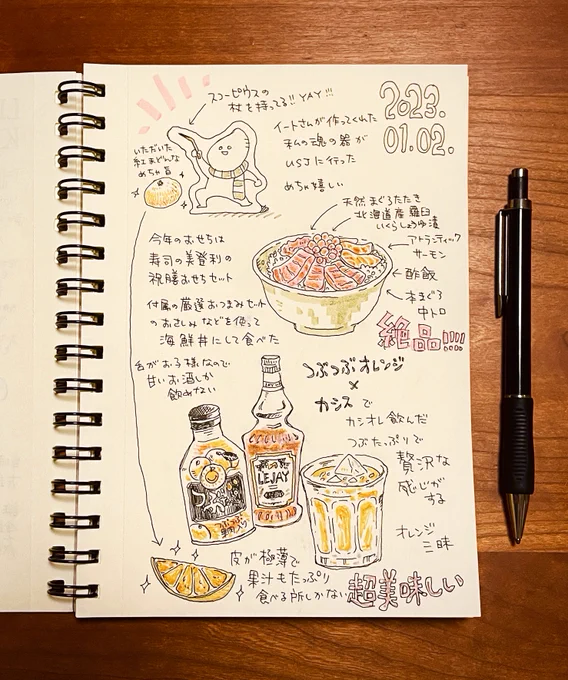 2023.
01.02.
スコーピウスの
杖を持ってる!! YAY!!!
イートさんが作ってくれた
私の魂の器が
USJに行った
めちゃ嬉しい
いただいた
紅まどんな
めちゃ旨
天然まぐろたたき
北海道産羅臼
いくらしょうゆ漬
アトランティック
サーモン
酢飯
本まぐろ
中トロ
絶品!!!!
今年のおせちは
寿司の美登利の
祝膳おせちセット
付属の厳選おつまみセット
のおさしみなどを使って
海鮮丼にして食べた
舌がお子様なので
甘いお酒しか
飲めない
つぶつぶオレンジ
×
カシスで
カシオレ飲んだ
つぶたっぷりで
贅沢な
感じが
する
オレンジ
三昧
LEJAY
皮が極薄で
果汁もたっぷり
食べる所しかない
超美味しい